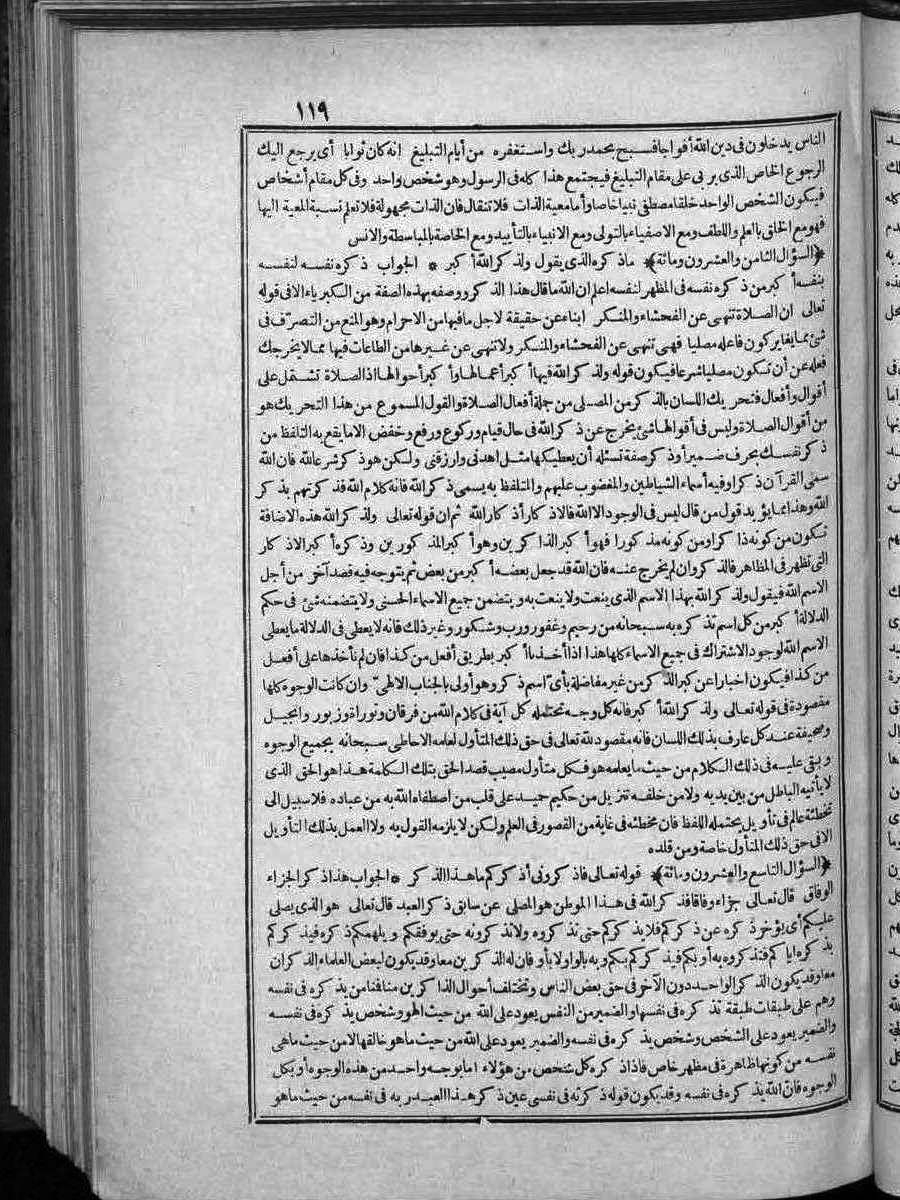 ١١٩
الناس يدخلون فى دين الله أفواجا فسبح بحمد ربك واستغفره من أيام التبليغ انه كان توابا أى يرجع اليك
الرجوع الخاص الذى يربى على مقام التبليغ فيجتمع هذا كله فى الرسول وهو شخص واحد وفى كل مقام أشخاص
فيكون الشخص الواحد خلقا مصطفى نبيا خاصا وأما معية الذات فلا تنقال فان الذات مجهولة فلا تعلم نسبة المعية اليها
فهو مع الخلق بالعلم واللطف ومع الاصفياء بالتولى ومع الانبياء بالتأييد ومع الخاصة بالمباسطة والانس
﴿السؤال الثامن والعشرون ومائة﴾ ماذكره الذى يقول ولذكر الله أكبر * الجواب ذكره نفسه لنفسه
بنفسه أكبر من ذكره نفسه فى المظهر لنفسه اعلم ان الله ما قال هذا الذكر ووصفه بهذه الصفة من الكبرياء الا فى قوله
تعالى ان الصلاة تنهى عن الفحشاء والمنكر انباء عن حقيقة لاجل ما فيها من الاحرام وهو المنع من التصرّف فى
شئ مما يغاير كون فاعله مصليا فهى تنهى عن الفحشاء والمنكر ولا تنهى عن غيرها من الطاعات فيها مما لا يخرجك
فعله عن أن تكون مصليا شرعا فيكون قوله ولذكر الله فيها أكبر أعمالها وأكبر أحوالها اذ الصلاة تشتمل على
أقوال وأفعال فتحريك اللسان بالذكر من المصلى من جملة أفعال الصلاة والقول المسموع من هذا التحريك هو
من أقوال الصلاة وليس فى أقوالها شئ يخرج عن ذكر الله فى حال قيام وركوع ورفع وخفض الا ما يقع به التلفظ من
ذكر نفسك بحرف ضمير أو ذكر صفة تسئله أن يعطيكها مثل اهدنى وارزقنى ولكن هو ذكر شرعا لله فان الله
سمى القرآن ذكرا وفيه أسماء الشياطين والمغضوب عليهم والمتلفظ به يسمى ذكر الله فانه كلام الله فقد كرتهم بذكر
الله وهذا مما يؤيد قول من قال ليس فى الوجود الا الله فالاذكار أذكار الله ثم ان قوله تعالى ولذكر الله هذه الاضافة
تكون من كونه ذاكرا ومن كونه مذكورا فهو أكبر الذاكرين وهو أكبر المذكورين وذكره أكبر الاذكار
التى تظهر فى المظاهر فالذكر وان لم يخرج عنه فان الله قد جعل بعضه أكبر من بعض ثم يتوجه فيه قصد آخر من أجل
الاسم الله فيقول ولذكر الله بهذا الاسم الذى ينعت ولا ينعت به ويتضمن جميع الاسماء الحسنى ولا يتضمنه شئ فى حكم
الدلالة أكبر من كل اسم تذكره به سبحانه من رحيم وغفور ورب وشكور وغير ذلك فانه لا يعطى فى الدلالة ما يعطى
الاسم الله لوجود الاشتراك فى جميع الاسماء كلها هذا اذا أخذنا أكبر بطريق أفعل من كذا فان لم نأخذها على أفعل
من كذا فيكون اخبارا عن كبر الذكر من غير مفاضلة بأىّ اسم ذكر وهو أولى بالجناب الالهىّ وان كانت الوجوه كلها
مقصودة فى قوله تعالى ولذكر الله أكبر فانه كل وجه تحتمله كل آية فى كلام الله من فرقان وتوراة وزبور وانجيل
وصحيفة عند كل عارف بذلك اللسان فانه مقصود لله تعالى فى حق ذلك المتأول لعلمه الاحاطى سبحانه بجميع الوجوه
وبقى عليه فى ذلك الكلام من حيث ما يعلمه هو فكل متأول مصيب قصد الحق بتلك الكلمة هذا هو الحق الذى
لا يأتيه الباطل من بين يديه ولا من خلفه تنزيل من حكيم حميد على قلب من اصطفاه الله به من عباده فلا سبيل الى
تخطئة عالم فى تأويل يحتمله اللفظ فان مخطئه فى غاية من القصور فى العلم ولكن لا يلزمه القول به ولا العمل بذلك التأويل
الا فى حق ذلك المتأول خاصة ومن قلده
﴿السؤال التاسع والعشرون ومائة﴾ قوله تعالى فاذكرونى أذكركم ما هذا الذكر * الجواب هذا ذكر الجزاء
الوفاق قال تعالى جزاء وفاقا فذكر الله فى هذا الموطن هو المصلى عن سابق ذكر العبد قال تعالى هو الذى يصلى
عليكم أى يؤخر ذكره عن ذكركم فلا يذكركم حتى تذكروه ولا تذكرونه حتى يوفقكم ويلهمكم ذكره فيذكركم
بذكره اياكم فتذكروه به أو بكم فيذكركم بكم وبه بالواو لا بأو فان له الذكرين معا وقد يكون لبعض العلماء الذكران
معا وقد يكون الذكر الواحد دون الآخر فى حق بعض الناس وتختلف أحوال الذاكرين منا فمنا من يذكره فى نفسه
وهم على طبقات طبقة تذكره فى نفسها والضمير من النفس يعود على الله من حيث الهو وشخص يذكره فى نفسه
والضمير يعود على الشخص وشخص يذكره فى نفسه والضمير يعود على الله من حيث ما هو خالقها لا من حيث ماهى
نفسه من كونها ظاهرة فى مظهر خاص فاذا ذكره كل شخص من هؤلاء اما بوجه واحد من هذه الوجوه أو بكل
الوجوه فان الله يذكره فى نفسه وقد يكون قوله ذكرته فى نفسى عين ذكر هذا العبد ربه فى نفسه من حيث ما هو